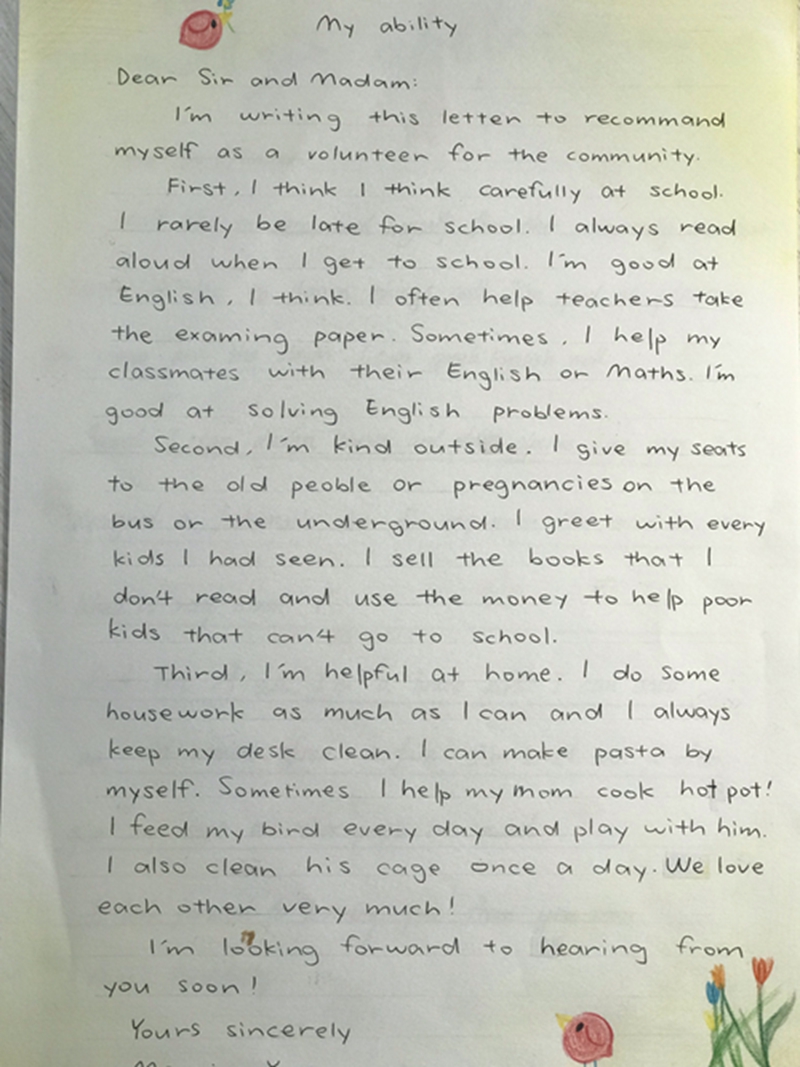 My ability
Dear Sir and Madam:
I'm writing this letter to recommand
myself as a volunteer for the community.
First, I think I think carefully at school.
I rarely be late for school. I always read
aloud when I get to school. I'm good at
English, I think. I often help teachers take
the examing paper. Sometimes, I help my
classmates with their English or Maths. I'm
good at solving English problems.
Second, I'm kind outside. I give my seats
to the old peoble or pregnancies on the
bus or the underground. I greet with every
kids I had seen. I sell the books that I
don't read and use the money to help poor
kids that can't go to school.
Third, I'm helpful at home. I do some
housework as much as I can and I always
keep my desk clean. I can make pasta by
myself. Sometimes I help my mom cook hot pot!
I feed my bird every day and play with him.
I also clean his cage once a day. We love
each other very much!
I'm looking forward to hearing from
you soon!
Yours sincerely